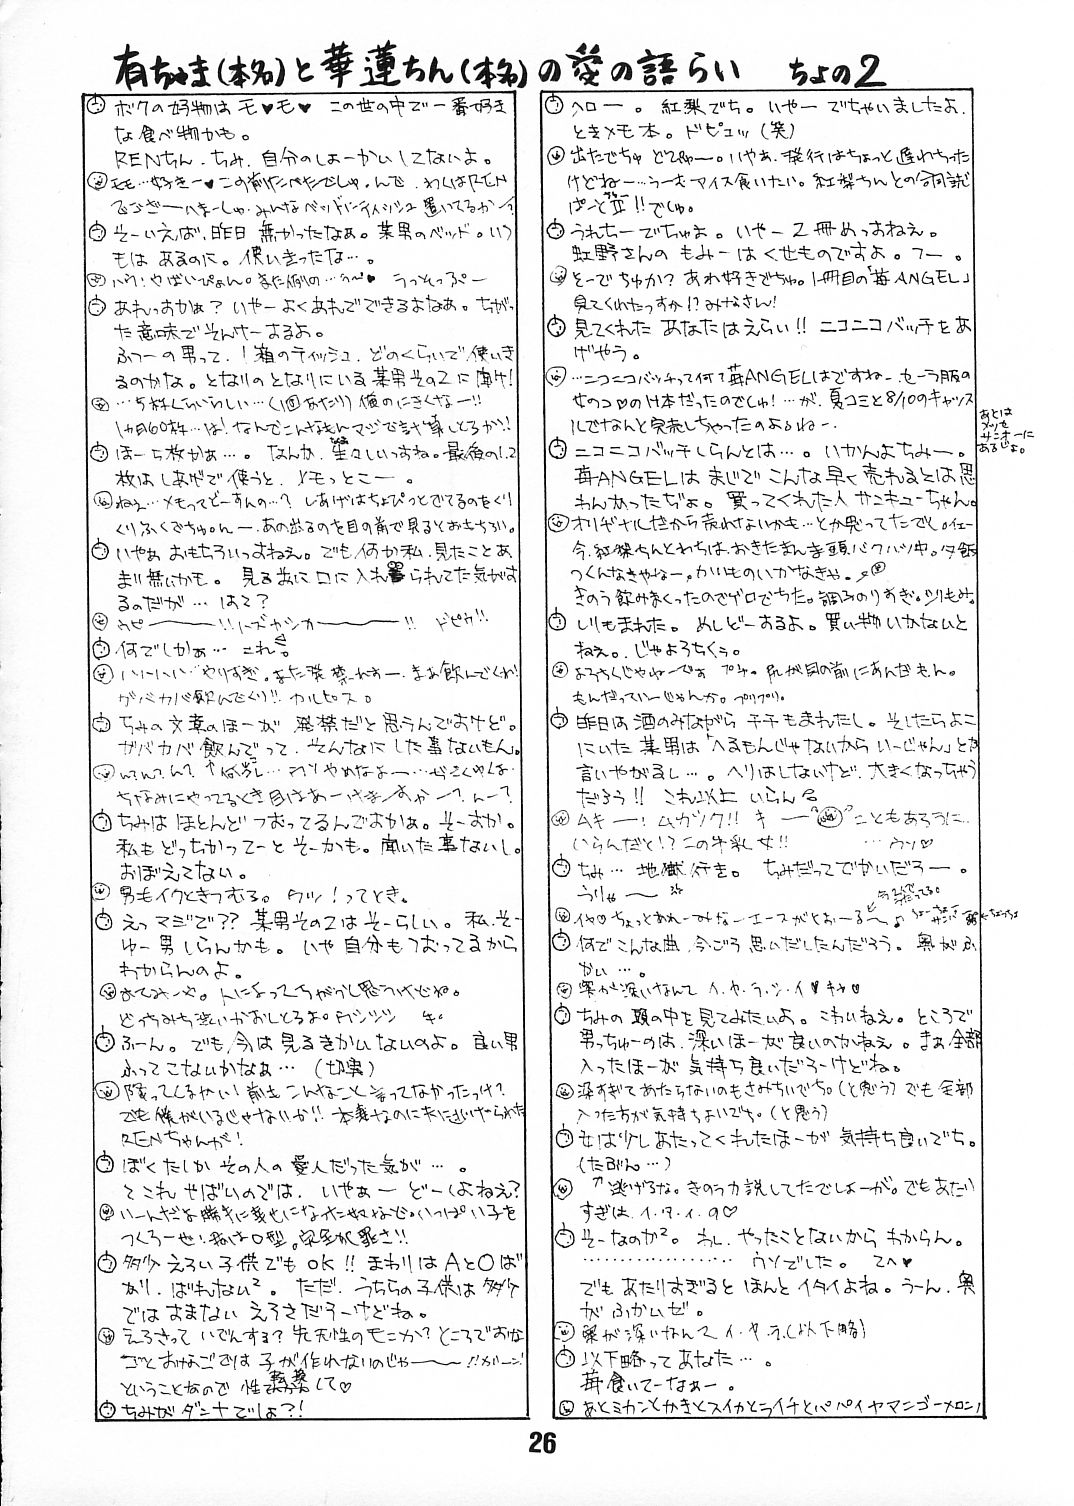 有ちゃま(本名)と華蓮ちん(本名)の愛の語らい ちょの2
ボクの好物はモ♥モ♥ この世の中で一番好き
な食べ物かも。
RENちん、ちみ、自分のしょーかいしてないよ。
モモ…好きー♥この前たべたでしゅ。んで、わしはREN
そーいえば、昨日 無かったなぁ。某男のベッド。いつ
もは あるのに。使いきったな…。
あれっすかぁ? いやーよくあれでできるよなぁ。ちがっ
た意味でそんけーするよ。
ふつーの男って、1箱のティッシュ、どのくらいで使いき
るのかな。となりのとなりにいる某男その2に聞け!
…5枚くらいらしい…(1回あたり)
ほー5枚かぁ…。なんか、生々しいっすね。最後の1.2
枚はしあげで使うと、メモっとこー。
ねぇ…メモってどーすんの…? しあげはちょぴっとでてるのをくり
くりふくでちゅ。んー、あの出るのを目の前で見るとおもちろい。
いやぁ おもちろいっすねぇ。でも、何か私、見たことあ
まり無いかも。 見る前に口に入れられてた気がす
るのだが… はて?
何でしかぁ… これ。
ガバカバ飲んでくり!! カルピス。
ちみの文章のほーが 発禁だと思うんですけど。
ガバカバ飲んでって、そんなにした事ないもん。
ちみは ほとんど つむってるんですかぁ。そーすか。
私もどっちかってーと そーかも。聞いた事ないし。
おぼえてない。
男もイクときつむる。ウッ!ってとき。
えっ マジで?? 某男その2はそーらしい。私、そー
ゆー男しらんかも。いや 自分もつむってるから
わからんのよ。
人によってちがうし思うけどね。
ふーん。でも、今は見るきかいないのよ。良い男
ふってこないかなぁ…(切実)
降ってくるかい! 前も こんなこと言ってなかったっけ?
でも僕がいるじゃないか!! 本妻なのに夫に逃げられた
RENちゃんが!
ぼくたしか その人の愛人だった気が…。
てこれ やばいのでは、いやぁー どーしよねえ?
多少 えろい子供でもOK!! まわりはAとOば
かり、ばれない²。 ただ、うちらの子供は多少
ではすまない えろさだろーけどね。
えろさって いでんする? 先天性のモニか? ところでおなご
とおなごでは 子が作れないのじゃー!!ガーン
ということなので 性転換して♡
ちみがダンナでしょ?!
ヘロー。 紅梨でち。いやー でちゃいましたよ、
ときメモ本。ドピュッ(笑)
出たでちゅ どぴゅー。いやぁ、発行はちょっと遅れちった
けどね…うーむアイス食いたい。紅梨ちんとの合同誌
ぱーとII!!でしゅ。
うれちーでちゅよ。いやー 2冊めっすねぇ。
虹野さんの もみーはくせものですよ。フー。
とーでちゅか? あわ好きでちゅ。1冊目の「苺ANGEL」
見てくれたっすか!? みなさん!
見てくれた あなたはえらい!! ニコニコバッチをあ
げやう。
…ニコニコバッチって何? 苺ANGELはですねー、セーラ服の
女のコ♡のH本だったのでしゅ!…が、夏コミと8/10のキャッス
ルでなんと完売しちゃったのよねー
あとは
メッセ
サンオーに
あるじょ。
ニコニコバッチしらんとは…。いかんよちみー。
苺ANGELは まじで こんな早く売れるとは思
わんかったぢょ。買ってくれた人 サンキューちゃん。
オリヂナルだから売れないかも…とか思ってたでし。イェー
今、紅梨ちんとわちは、おきたまんま頭バクハツ中。夕飯
つくんなきゃねー。かいものいかなきゃ。
きのう飲みまくったのでゲロでちた。調子のりすぎ。シリもみ。
しりもまれた。めしどーするよ。買い物いかないと
ねぇ。じゃよろちくぅ。
よろちくじゃねーですよ プゥ。尻が目の前にあんだもん。
もんだっていーじゃんか。プリプリ。
昨日は酒のみながら チチもまれたし。そしたらよこ
にいた 某男は「へるもんじゃないから いーじゃん」とか
言いやがるし…。ヘリはしないけど、大きくなっちゃう
だろう!! これ以上 いらん
ムキー! ムカツク!! キー こともあろうに、
いらんだと!? この牛乳女!! …ウソ♡
ちみ… 地獄行き。 ちみだってでかいだろー。
うりゃー
何でこんな曲、今ごろ思いだしたんだろう。奥がふ
かい…。
奥が深いなんて イ・ヤ・ラ・シ・イ♥キャ♡
ちみの 頭の中を見てみたいよ。こわいねえ。ところで
男っちゅーのは、深いほーが良いのかねえ。まぁ全部
入ったほーが 気持ち良いだろーけどね。
深すぎてあたらないのもさみちいでち。(と思う)でも全部
入った方が気持ちよいでち。(と思う)
女は少しあたってくれたほーが 気持ち良いでち。
(たぶん…)
逃げるな。きのう力説してたでしょーが。でもあたり
すぎは、イ・タ・イ・の♡
そーなのか²。わし、やったことないから わからん。
………………… ウソでした。 てへ♥
でも あたりすぎると ほんと イタイよね。うーん、奥
が ふかいゼ。
奥が深いなんて イ・ヤ・ラ(以下略)
以下略って あなた…。
苺食いてーなぁー。
あとミカンとかきとスイカとライチとパパイヤマンゴーメロン!
26